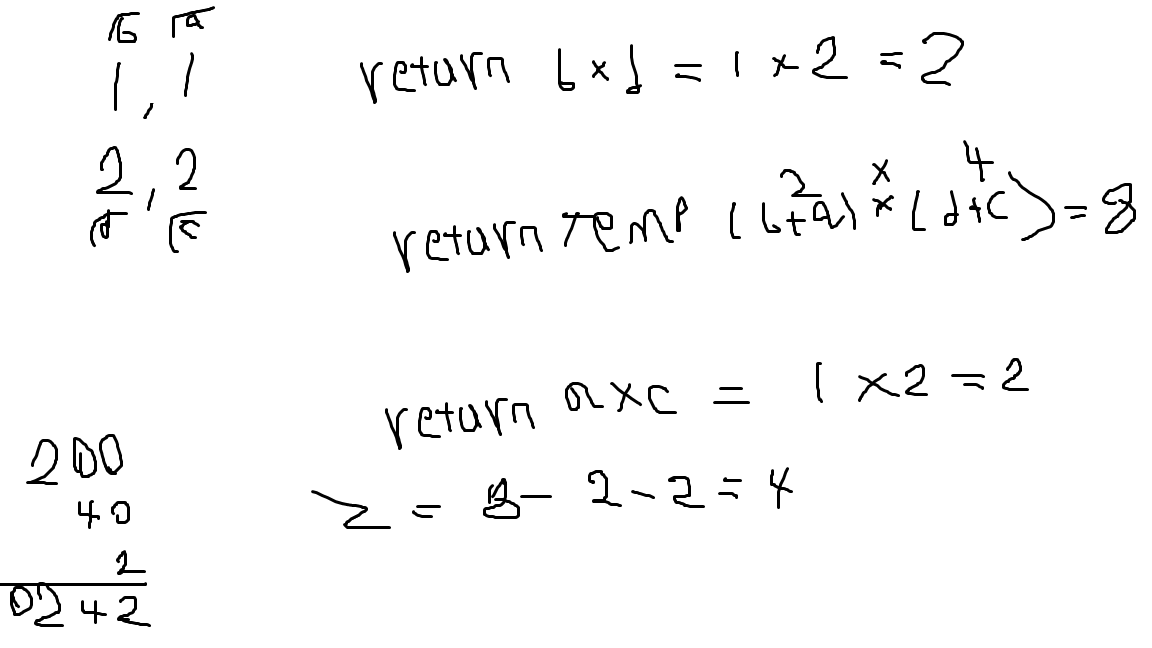 b a
1, 1
return b × d = 1 × 2 = 2
2, 2
d c
2 × 4
return Temp (b+a) × (d+c) = 8
return a×c = 1 × 2 = 2
200
40
2
0242
z = 8 - 2 - 2 = 4